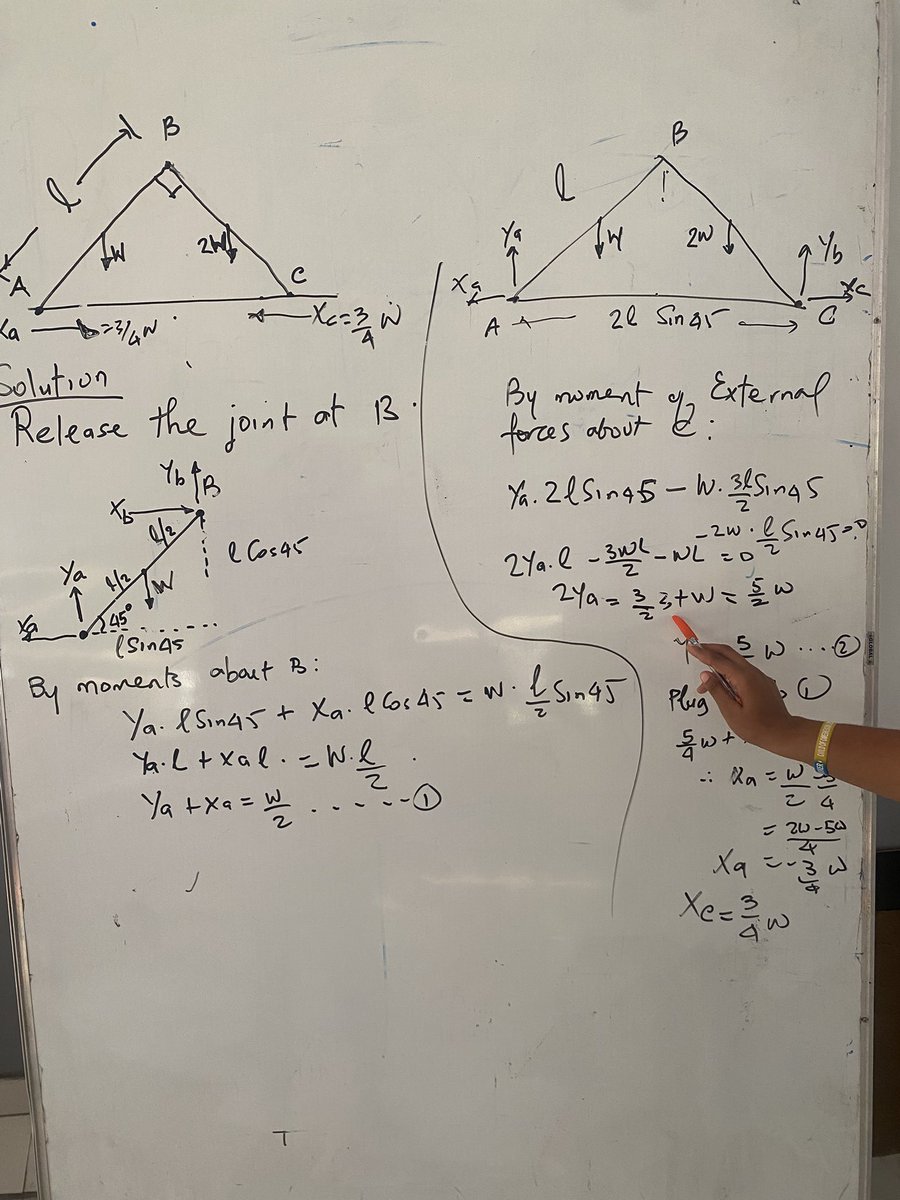 B
l
W
2W
A
C
Xa
=3/4 W
Xc = 3/4 W
Solution
Release the joint at B.
Yb
B
Xb
l/2
l Cos45
Ya
l/2
W
Xa
45°
lSin45
By moments about B:
Ya. lSin45 + Xa. l Cos45 = W. l/2 Sin45
Ya. L + Xal. = W. l/2
Ya + Xa = W/2 ...... ①
B
l
Ya
W
2W
Yb
Xa
Xc
A
2l Sin45
C
By moment of External
forces about C:
Ya. 2lSin45 - W. 3l/2 Sin45
-2W. l/2 Sin45=0
2Ya.l - 3WL/2 - WL = 0
2Ya = 3/2 + W = 5/2 W
5 W ... ②
Plug ①
5/4 W +
∴ Xa = W/2 4
= 2W-5W/4
Xa = -3/4 W
Xc = 3/4 W
T